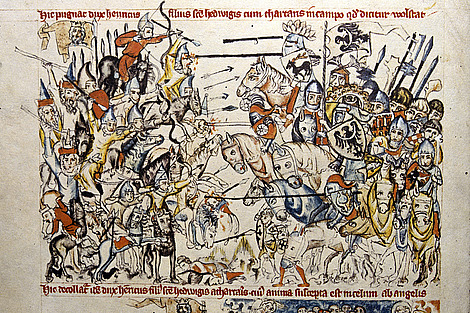 Hic pugnat dux henricus filius sce hedwigis cum thartaris in campo qd dicitur wolstat
Hic decollat dux henricus filius sce hedwigis a thartaris cui anima suscepta est in celum ab angelis